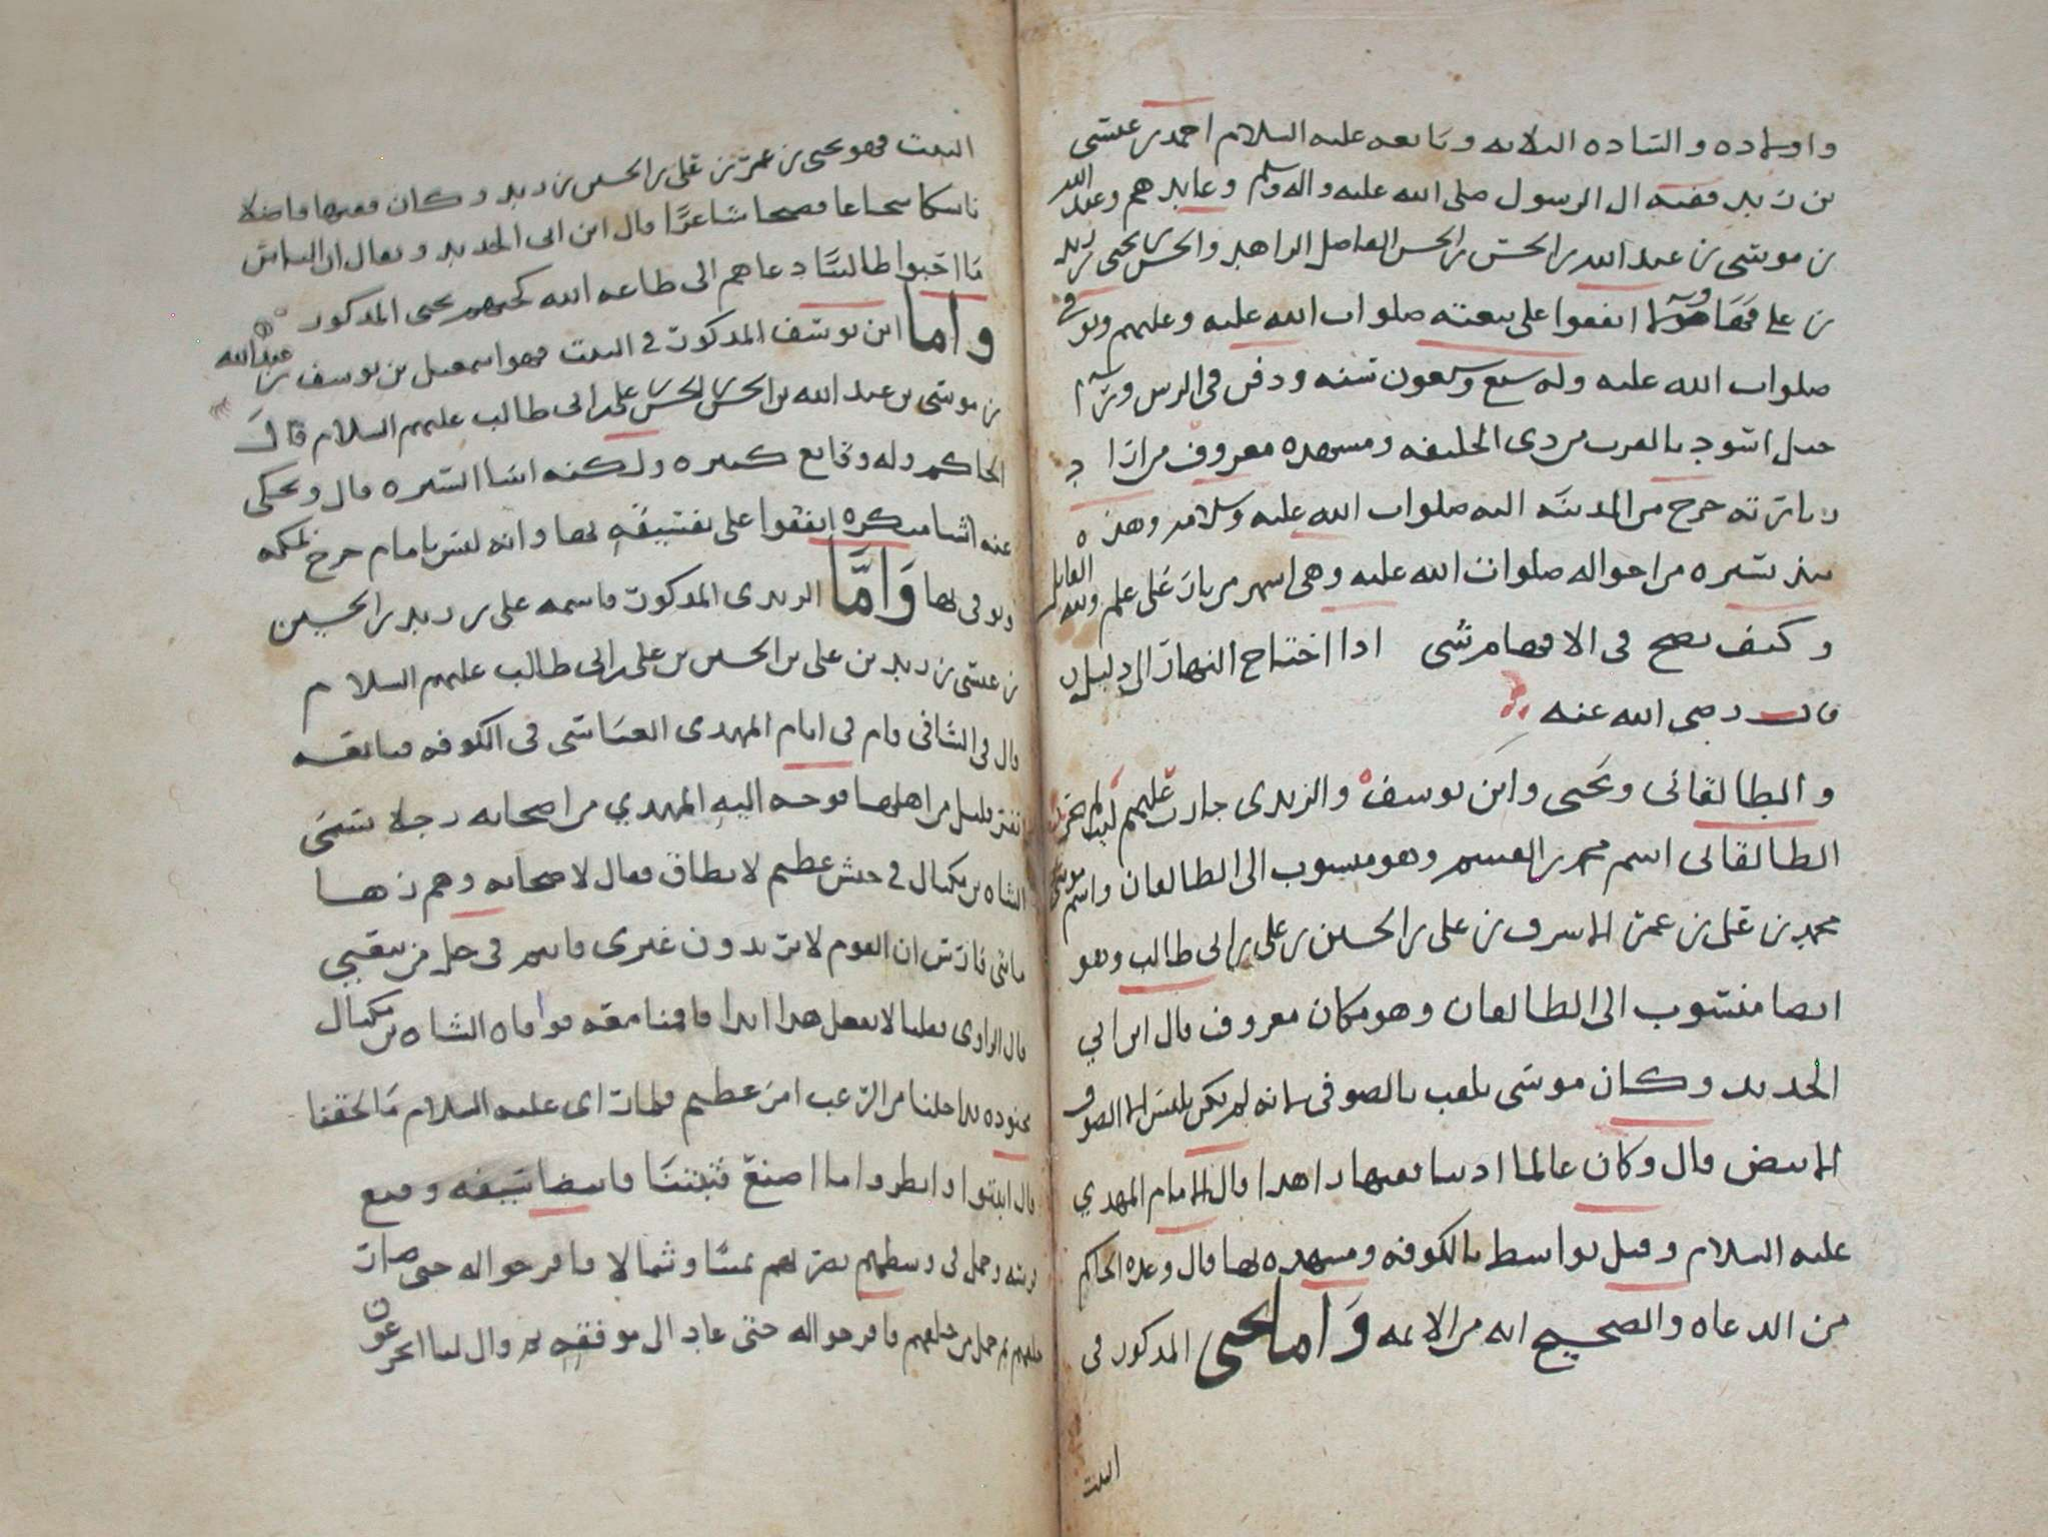 واولاده والساده الثلاثه وتابعه عليه السلام احمد بن عيسى
بن زيد فقيه ال الرسول صلى الله عليه واله وسلم وعابدهم وعبد الله
بن موسى بن عبد الله بن الحسن بن الحسن الفاضل الزاهد والحسن بن يحيى بن زيد
بن علي اتفقوا على بيعته صلوات الله عليه وعليهم وتوفي
صلوات الله عليه وله سبع وسبعون سنه ودفن في الرس
جبل اسود بالقرب من دى الحليفه ومشهده معروف مزارا
صلوات الله عليه وسلامه وهذه
سيره من احواله صلوات الله عليه وهي اشهر من نار على علم ولله القايل
وكيف يصح في الافهام شي اذا احتاج النهار الى دليل
قال رضي الله عنه
والطالقاني ويحيى وابن يوسف والزيدي جارت عليهم
الطالقاني اسم محمد بن القسم وهو منسوب الى الطالقان واسم موسى
محمد بن علي بن عمر الاشرف بن علي بن الحسين بن علي بن ابي طالب وهو
ايضا منسوب الى الطالقان وهو مكان معروف قال ابن ابي
الحديد وكان موسى يلقب بالصوفي لانه لم يكن يلبس الا الصوف
الابيض قال وكان عالما اديبا فقيها زاهدا قال الامام المهدي
عليه السلام وقيل بواسط بالكوفه ومشهده بها قال وعده الحاكم
من الدعاه والصحيح انه من الائمه واما يحيى المذكور في
البيت
البيت فهو يحيى بن عمر بن علي بن الحسين بن زيد وكان فقيها فاضلا
ناسكا شجاعا فصيحا شاعرا قال ابن ابي الحديد ويقال ان الناس
ما احبوا طالبيا دعاهم الى طاعه الله كحبهم يحيى المذكور
واما ابن يوسف المذكور في البيت فهو اسمعيل بن يوسف بن عبد الله
بن موسى بن عبد الله بن الحسن بن الحسن بن علي بن ابي طالب عليهم السلام قال
الحاكم وله وقايع كثيره ولكنه اسا السيره قال ويحكى
عنه اشيا منكره اتفقوا على تفسيقه بها وانه ليس بامام خرج بمكه
وتوفي بها واما الزيدي المذكور فاسمه علي بن زيد بن الحسين
بن عيسى بن زيد بن علي بن الحسين بن علي بن ابي طالب عليهم السلام
قال في الشافي قام في ايام المهدي العباسي في الكوفه فبايعه
نفر قليل من اهلها فوجه اليه المهدي من اصحابه رجلا يسمى
الشاه بن ميكال في جيش عظيم لا يطاق فقال لاصحابه وهم زها
مايتي فارس ان القوم لا يريدون غيري فانتم في حل من بيعتي
قال الراوي فقلنا لا نفعل هذا ابدا فاقمنا معه فوافاه الشاه بن ميكال
بجنوده فداخلنا من الرعب امر عظيم فلما راى عليه السلام ما لحقنا
قال اثبتوا وانظروا ما اصنع فثبتنا فانتضا سيفه وقنع
فرسه وحمل في وسطهم يضربهم يمينا وشمالا فافرجوا له حتى صار
خلفهم ثم حمل من خلفهم فافرجوا له حتى عاد الى موقفه ثم قال لنا